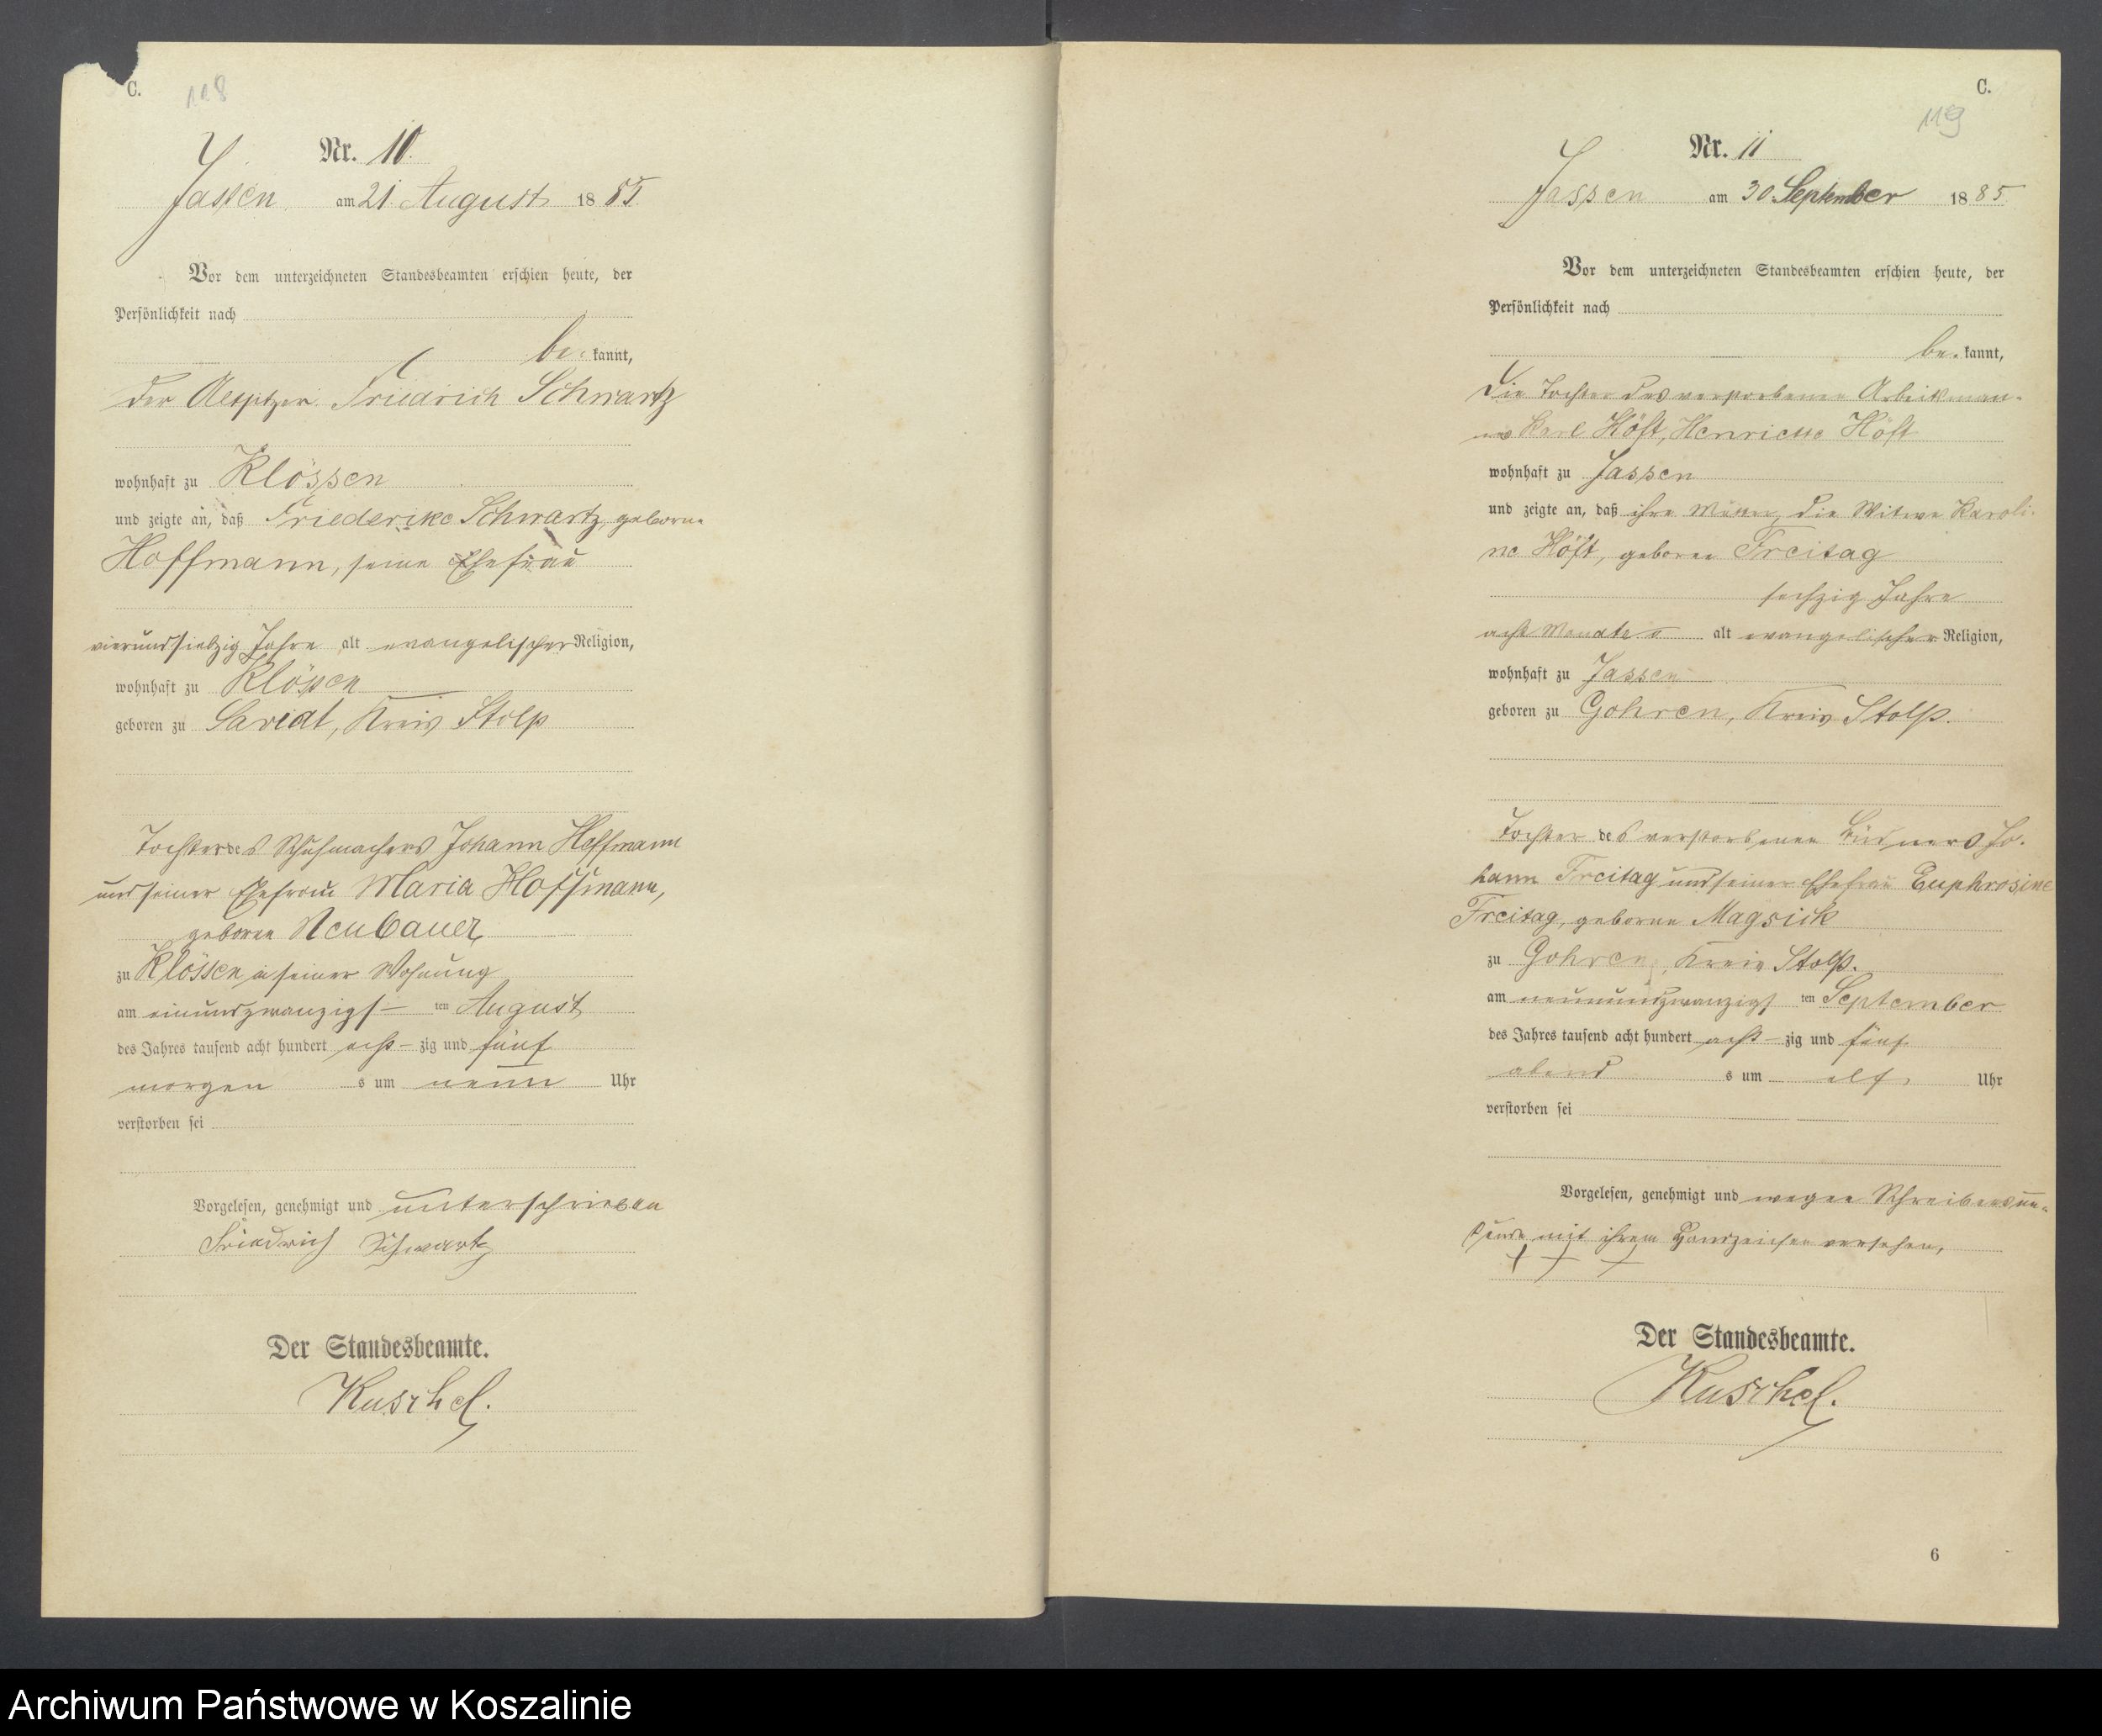 C.
118
Nr. 10.
Jassen am 21. August 1885
Vor dem unterzeichneten Standesbeamten erschien heute, der
Persönlichkeit nach
be- kannt,
der Friedrich Schwartz
wohnhaft zu Klössen
und zeigte an, daß Friederike Schwartz, geborne
Hoffmann, seine Ehefrau
vierundsiebzig Jahre alt evangelischer Religion,
wohnhaft zu Klössen
geboren zu Kreis Stolp
Tochter des Schuhmachers Johann Hoffmann
und seiner Ehefrau Maria Hoffmann,
geborne Neubauer
zu Klössen in seiner Wohnung
am einundzwanzigsten August
des Jahres tausend acht hundert acht- zig und fünf
morgen s um neun Uhr
verstorben sei
Vorgelesen, genehmigt und unterschrieben
Friedrich Schwartz
Der Standesbeamte.
Kuschel.
C.
119
Nr. 11
Jassen am 30. September 1885
Vor dem unterzeichneten Standesbeamten erschien heute, der
Persönlichkeit nach
be- kannt,
die Tochter des verstorbenen Arbeitsman-
nes Karl Höft, Henriette Höft
wohnhaft zu Jassen
und zeigte an, daß ihre Mutter, die Witwe Karoli-
ne Höft, geborne Freitag
sechzig Jahre
acht Monate alt evangelischer Religion,
wohnhaft zu Jassen
geboren zu Gohren, Kreis Stolp.
Tochter des verstorbenen Büdners Jo-
hann Freitag und seiner Ehefrau Euphrosine
Freitag, geborne Magsick
zu Gohren, Kreis Stolp.
am neunundzwanzigsten September
des Jahres tausend acht hundert acht- zig und fünf
abend s um elf Uhr
verstorben sei
Vorgelesen, genehmigt und wegen Schreibensun-
kunde mit ihrem Handzeichen versehen,
+ + +
Der Standesbeamte.
Kuschel.
6
Archiwum Państwowe w Koszalinie